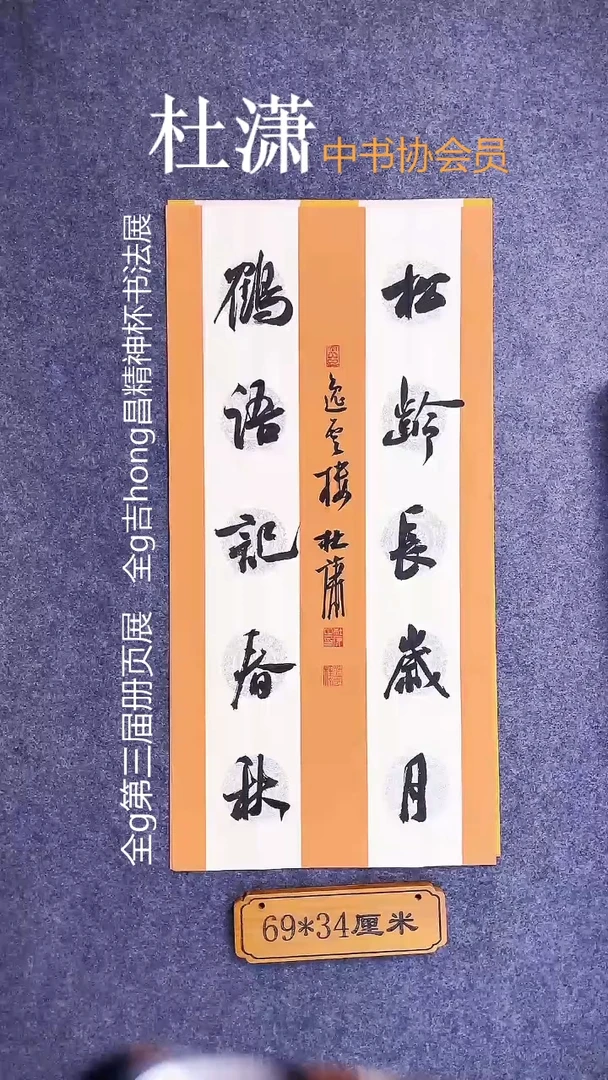 杜潇
中书协会员
全g吉hong昌精神杯书法展
全g第三届册页展
松龄長歲月
鶴語記春秋
逸雲楼 杜潇
69*34厘米